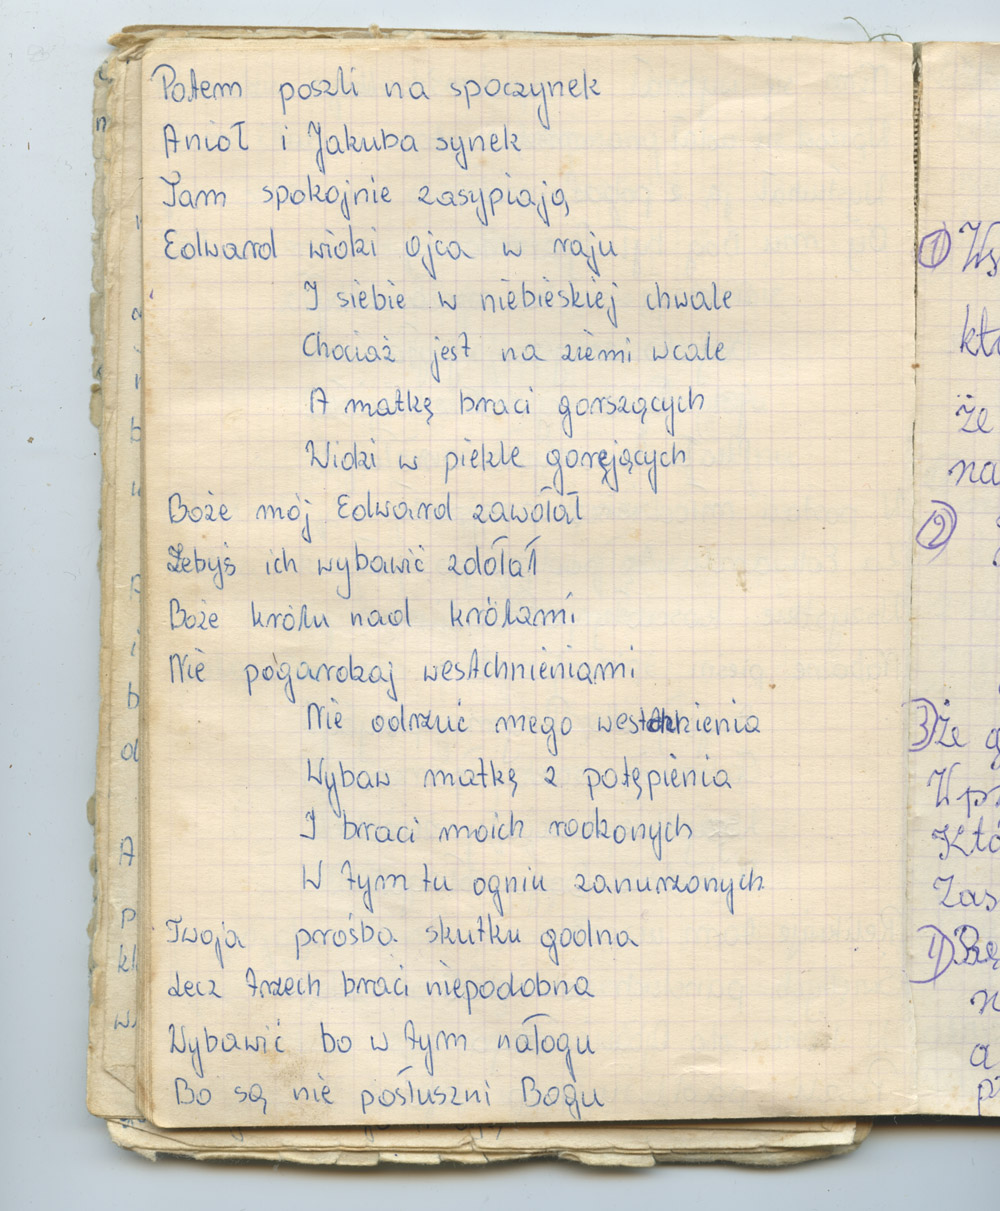 Potem poszli na spoczynek
Anioł i Jakuba synek
Tam spokojnie zasypiają
Edward widzi ojca w raju
I siebie w niebieskiej chwale
Chociaż jest na ziemi wcale
A matkę braci gorszących
Widzi w piekle goręjących
Boże mój Edward zawołał
Żebyś ich wybawić zdołał
Boże królu nad królami
Nie pogardzaj westchnieniami
Nie odrzuć mego westchnienia
Wybaw matkę z potępienia
I braci moich rodzonych
W tym tu ogniu zanurzonych
Twoja prośba skutku godna
Lecz trzech braci niepodobna
Wybawić bo w tym nałogu
Bo są nie posłuszni Bogu
① Ws
któ
że
na
②
③ Że g
W pr
Któ
Zas
④
n
a
pr